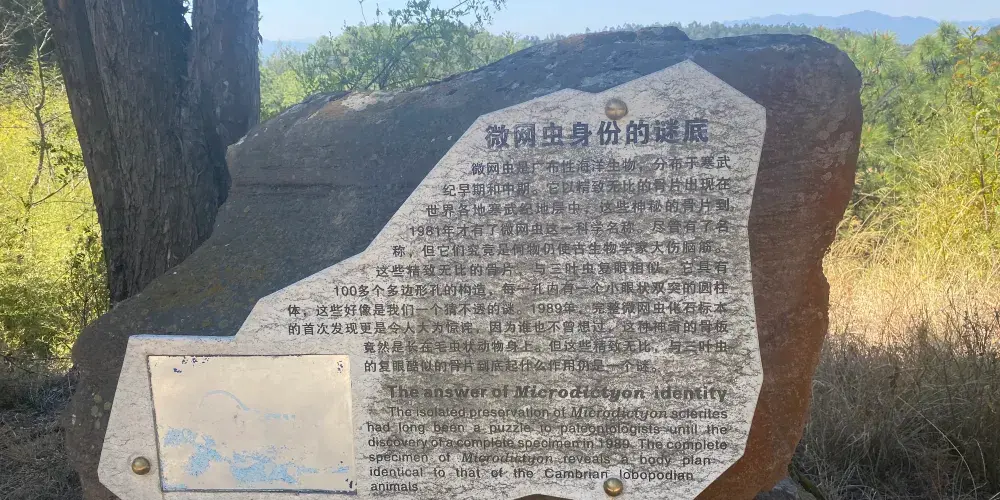 微网虫身份的谜底
微网虫是广布性海洋生物，分布于寒武
纪早期和中期。它以精致无比的骨片出现在
世界各地寒武纪地层中，这些神秘的骨片到
1981年才有了微网虫这一科学名称。尽管有了名
称，但它们究竟是何物仍使古生物学家大伤脑筋。
这些精致无比的骨片，与三叶虫复眼相似，它具有
100多个多边形孔的构造，每一孔内有一个小眼状双突的圆柱
体，这些好像是我们一个猜不透的谜。1989年，完整微网虫化石标本
的首次发现更是令人大为惊诧，因为谁也不曾想过，这种神奇的骨板
竟然是长在毛虫状动物身上。但这些精致无比、与三叶虫
的复眼酷似的骨片到底起什么作用仍是一个谜。
The answer of Microdictyon identity
The isolated preservation of Microdictyon sclerites
had long been a puzzle to paleontologists until the
discovery of a complete specimen in 1989. The complete
specimen of Microdictyon reveals a body plan
identical to that of the Cambrian lobopodian
animals.